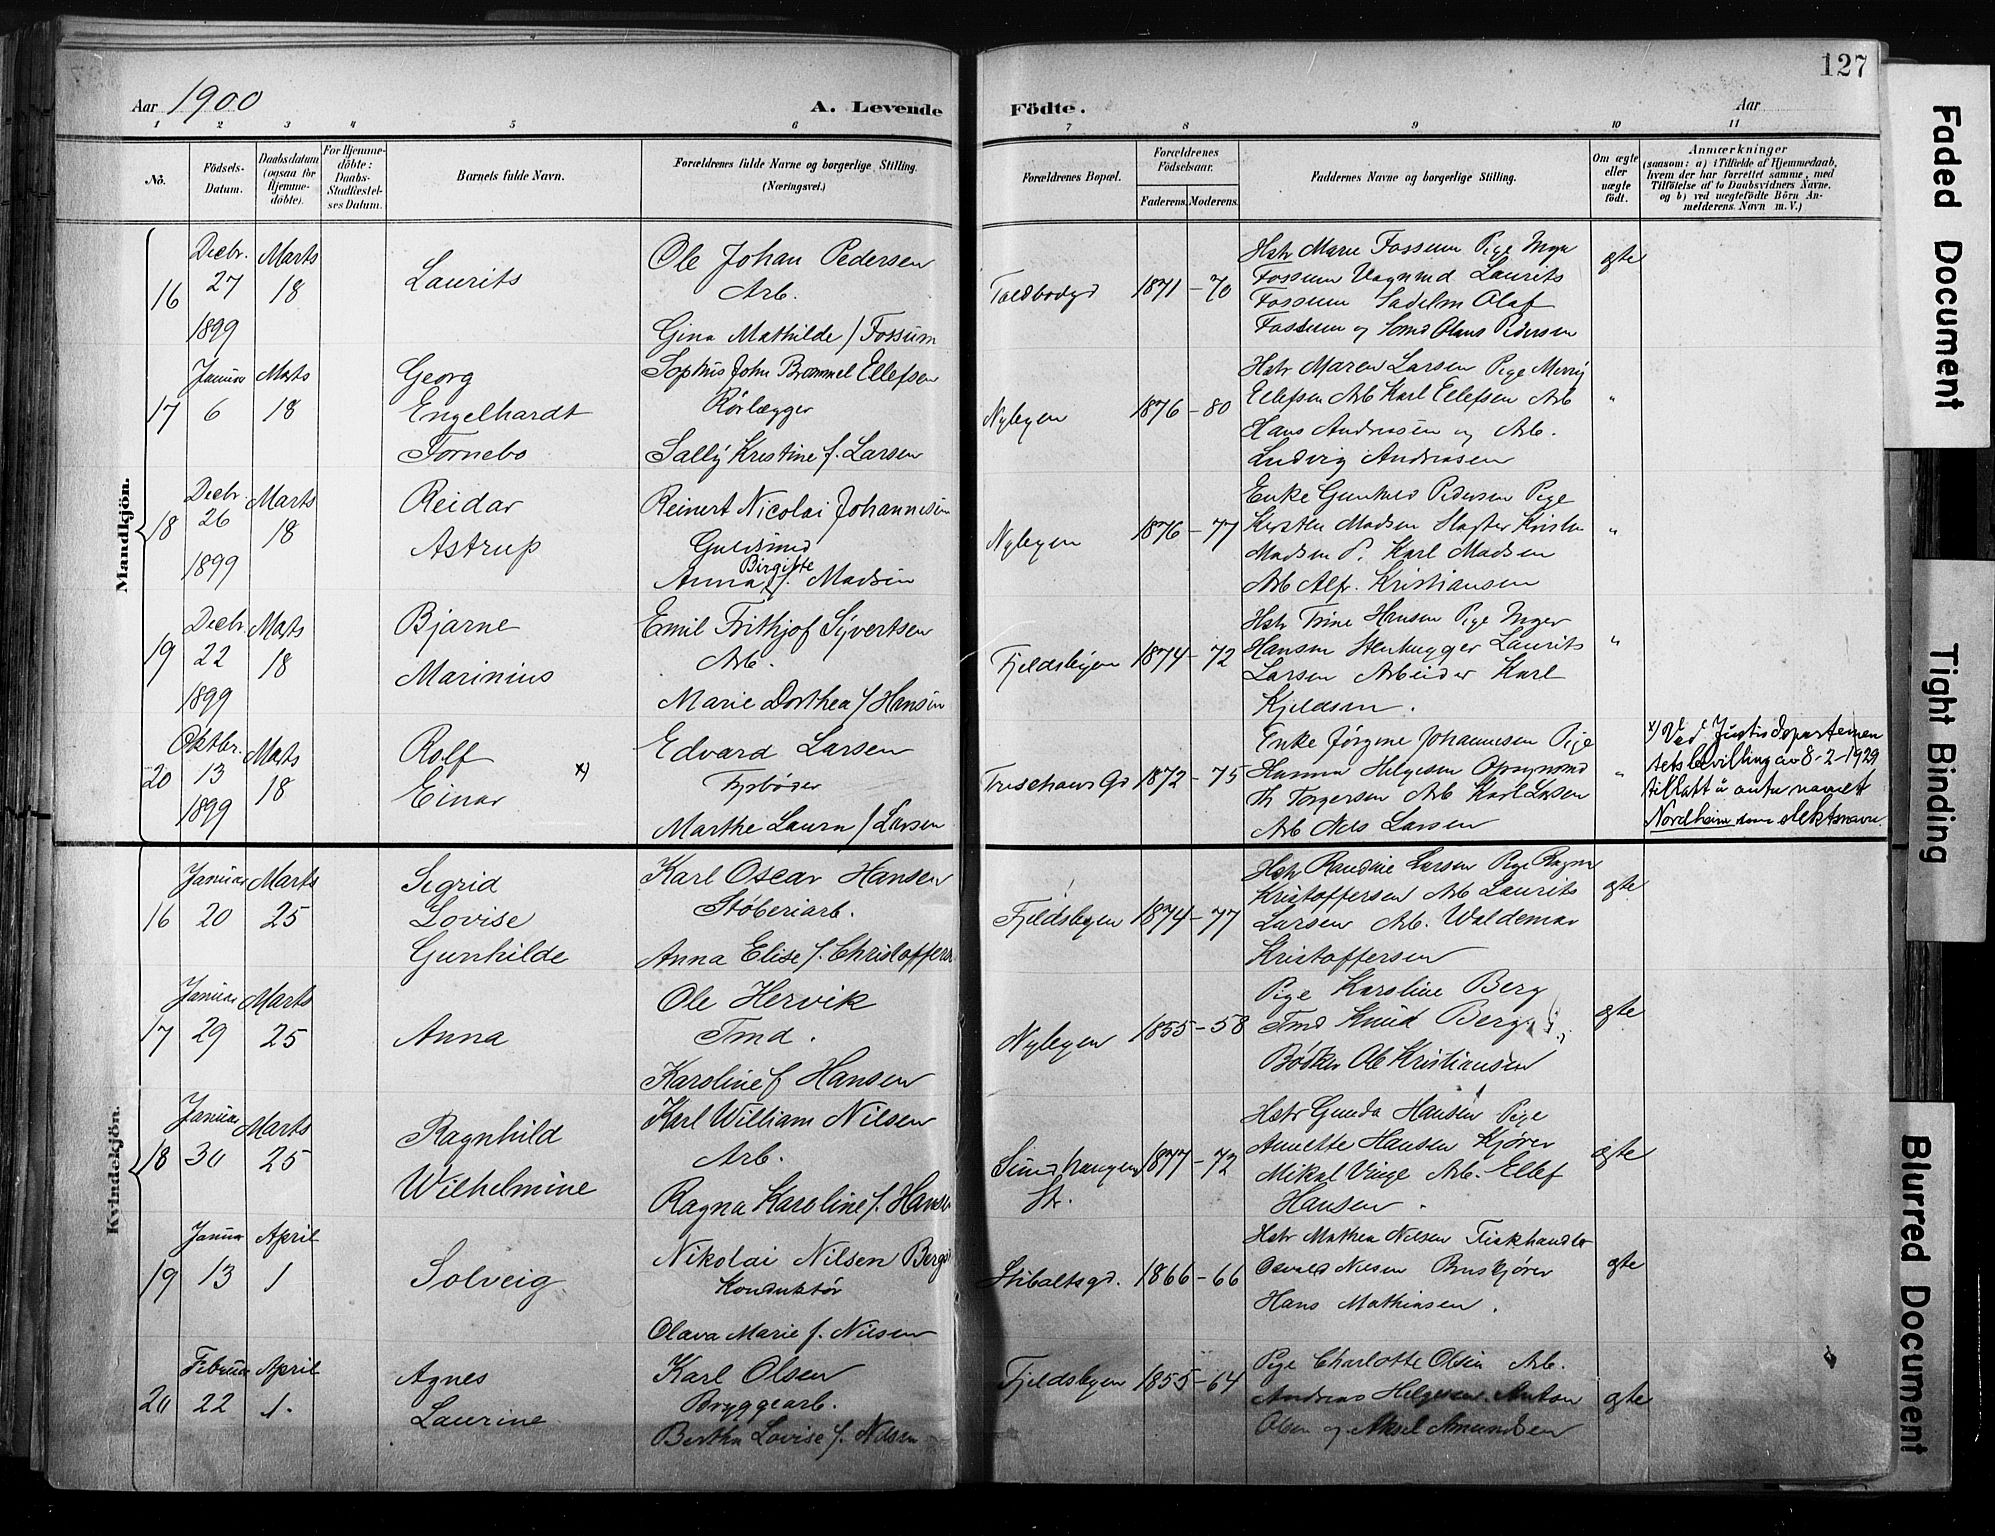 127
Aar 1900
A. Levende
Födte.
Aar
1 2 3 4 5 6 7 8 9 10 11
No.
Födsels-
Datum.
Daabsdatum
(ogsaa for
Hjemme-
döbte).
For Hjemme-
döbte:
Daabs-
Stadfæstel-
ses Datum.
Barnets fulde Navn.
Forældrenes fulde Navne og borgerlige Stilling.
(Næringsvei.)
Forældrenes Bopæl.
Forældrenes
Födselsaar.
Faderens. Moderens.
Faddernes Navne og borgerlige Stilling.
Om ægte
eller
uægte
födt.
Anmærkninger
(saasom: a) i Tilfælde af Hjemmedaab,
hvem der har forrettet samme, med
Tilföielse af to Daabsvidners Navne,
og b) ved uægtefödte Börn An-
melderens Navn m. V.)
Mandkjön.
16
Decbr.
27
1899
Marts
18
Laurits
Ole Johan Pedersen
Arb.
Gina Mathilde f Fossum
Toldbodgd
1871 - 70
Hstr Marie Fossum Pige
Fossum Vognmd Laurits
Fossum Sadelm Olaf
Fossum og Olaus Pedersen
ægte
17
Januar
6
Marts
18
Georg
Engelhardt
Tornebo
Sophus John Brommel Ellefsen
Rørlægger
Sally Kristine f. Larsen
Nybyen
1876 - 80
Hstr Maren Larsen Pige
Ellefsen Arb Karl Ellefsen Arb
Hans Andreasen og Arb.
Ludvig Andreasen
"
18
Decbr.
26
1899
Marts
18
Reidar
Astrup
Reinert Nicolai Johannesen
Guldsmed
Anna Birgitte f. Madsen
Nybyen
1876 - 77
Enke Pedersen Pige
Madsen
Madsen Karl Madsen
Arb Alfr. Kristiansen
"
19
Decbr
22
1899
Marts
18
Bjarne
Marinius
Emil Frithjof Syvertsen
Arb.
Marie Dorthea f Hansen
Fjeldsbyen
1874 - 72
Hstr Trine Hansen Pige Inger
Hansen Stenhugger Laurits
Larsen Arbeider Karl
Kjeldsen.
"
20
Oktbr.
13
1899
Marts
18
Rolf
Einar
x)
Edvard Larsen
Fyrbøder
Marthe Laura f Larsen
Treschows Gd
1872 - 75
Enke Jørgine Johannesen Pige
Hanna Helgesen Opsynsmd
Th Torgersen Arb Karl Larsen
Arb Nils Larsen
"
x) Ved Justisdepartemen
tets bevilling av 8-2-1929
tillatt å anta navnet
Nordheim som slektsnavn.
Kvindekjön.
16
Januar
20
Marts
25
Sigrid
Lovise
Gunhilde
Karl Oscar Hansen
Støberiarb.
Anna Elise f. Christoffers
Fjeldsbyen
1874 - 77
Hstr Randine Larsen Pige Ragna
Kristoffersen Arb Laurits
Larsen Arb. Waldemar
Kristoffersen
ægte
17
Januar
29
Marts
25
Anna
Ole Hervik
Tmd.
Karoline f Hansen
Nybyen
1855 - 58
Pige Karoline Berg
Tmd Knud Berg
Bødker Ole Kristiansen
ægte
18
Januar
30
Marts
25
Ragnhild
Wilhelmine
Karl William Nilsen
Arb.
Ragna Karoline f. Hansen
St.
1877 - 72
Hstr Gunda Hansen Pige
Annette Hansen Kjører
Mikal Vinge Arb. Ellef
Hansen.
ægte
19
Januar
13
April
1
Solveig
Nikolai Nilsen Berg
Konduktør
Olava Marie f. Nilsen
Stibaltsgd.
1866 - 66
Hstr Mathea Nilsen Fiskhandler
Osvald Nilsen
Hans Mathiasen.
ægte
20
Februar
22
April
1.
Agnes
Laurine
Karl Olsen
Bryggearb.
Bertha Lovise f. Nilsen
Fjeldsbyen
1855 - 64
Pige Charlotte Olsen Arb.
Andreas Helgesen. Anton
Olsen og Aksel Amundsen
ægte
Faded Document
Tight Binding
Blurred Document